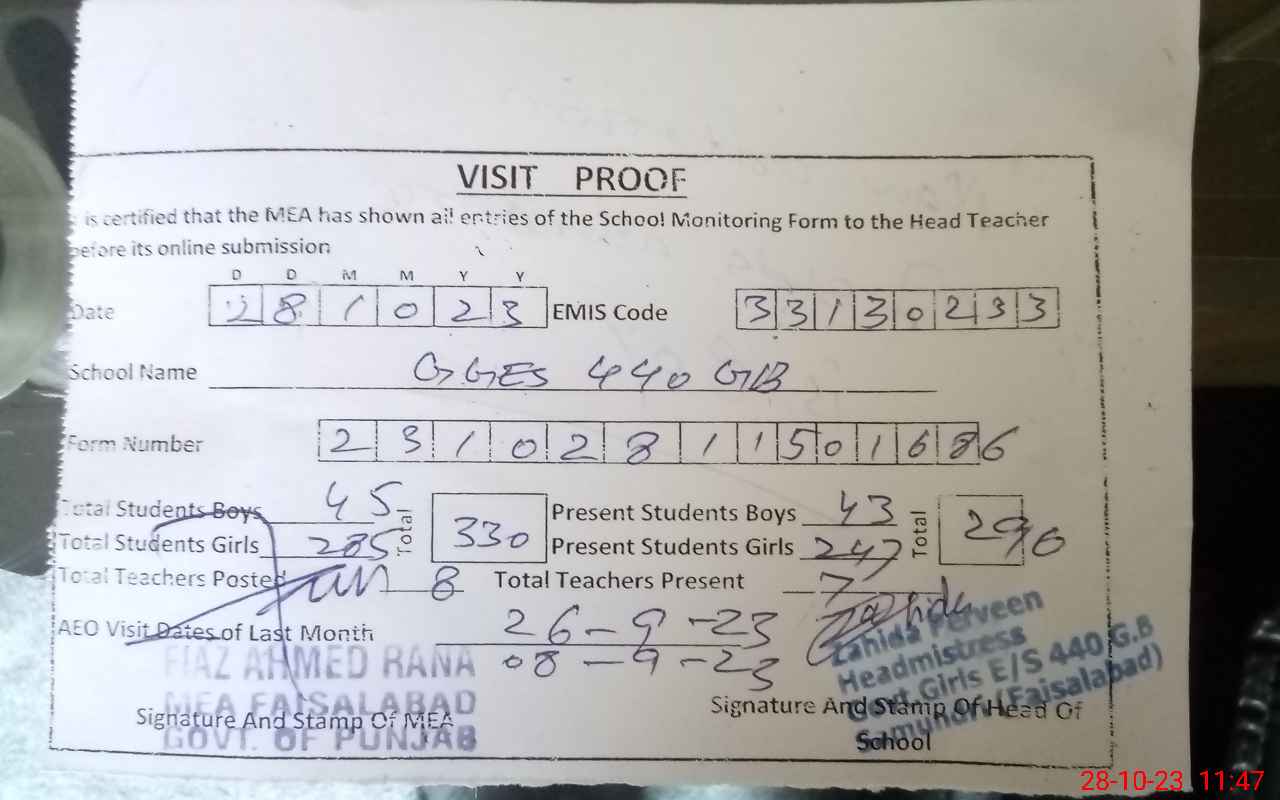 VISIT PROOF
is certified that the MEA has shown all entries of the School Monitoring Form to the Head Teacher
before its online submission
D D M M Y Y
Date 2 8 1 0 2 3 EMIS Code 3 3 1 3 0 2 3 3
School Name GGES 440 GB
Form Number 2 3 1 0 2 8 1 1 5 0 1 6 8 6
Total Students Boys 45 Total 330 Present Students Boys 43 Total 296
Total Students Girls 285 Present Students Girls 247
Total Teachers Posted 8 Total Teachers Present 7
AEO Visit Dates of Last Month 26-9-23
08-9-23
FIAZ AHMED RANA
MEA FAISALABAD
GOVT. OF PUNJAB
Signature And Stamp Of MEA
Zahida Perveen
Headmistress
Govt Girls E/S 440 G.B
(Faisalabad)
Signature And Stamp Of Head Of
School
28-10-23 11:47